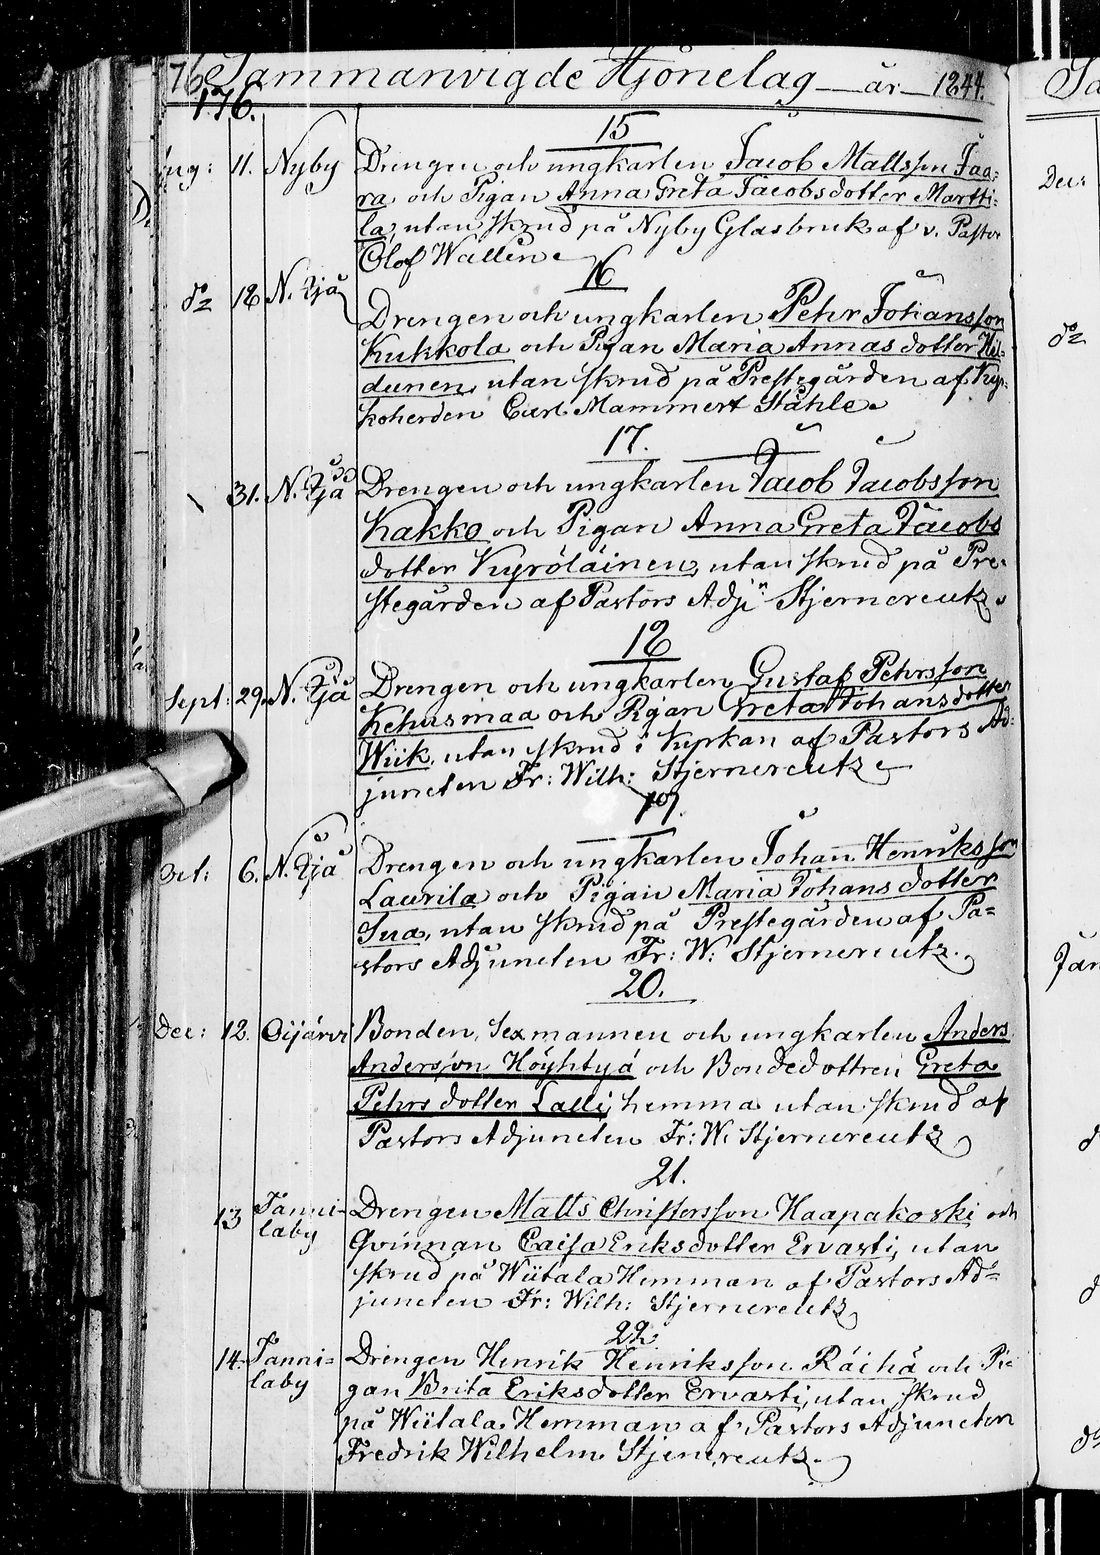 76 Sammanvigde Hjonelag år 1844.
176.
15
Aug: 11. Nyby Drengen och ungkarlen Jacob Mattsson Jaa-
ra och Pigan Anna Greta Jacobsdotter Martti-
la, utan skrud på Nyby Glasbruk af v. Pastor
Olof Wallin
16
do 18 N. Ijå Drengen och ungkarlen Pehr Johansson
Kukkola och Pigan Maria Annasdotter Hil-
dunen, utan skrud på Prestegården af Kyr-
koherden Carl Mammert Ståhle.
17.
31. N. Ijå Drengen och ungkarlen Jacob Jacobsson
Kakko och Pigan Anna Greta Jacobs
dotter Kyröläinen, utan skrud på Pre-
stegården af Pastors Adjn Stjernereutz.
18
Sept: 29. N. Ijå Drengen och ungkarlen Gustaf Pehrsson
Kehusmaa och Pigan Greta Johansdotter
Wiik, utan skrud i Kyrkan af Pastors Ad-
juncten Fr: Wilh: Stjernereutz
19.
Oct: 6. N. Ijå Drengen och ungkarlen Johan Henriksson
Laurila och Pigan Maria Johansdotter
Sua, utan skrud på Prestegården af Pa-
stors Adjuncten Fr: W: Stjernereutz.
20.
Dec: 12. Oijärvi Bonden, Sexmannen och ungkarlen Anders
Andersson Höyhtyä och Bondedottren Greta
Pehrsdotter Lalli, hemma utan skrud af
Pastors Adjuncten Fr: W. Stjernereutz
21.
13 Tanni- Drengen Matts Christersson Haapakoski och
laby Qvinnan Caisa Eriksdotter Ervasti, utan
skrud på Wiitala Hemman af Pastors Ad-
juncten Fr: Wilh: Stjernereutz
22.
14. Tanni- Drengen Henrik Henriksson Räihä och Pi-
laby gan Brita Eriksdotter Ervasti, utan skrud
på Wiitala Hemman af Pastors Adjuncten
Fredrik Wilhelm Stjernereutz.
Dec:
do
Jan